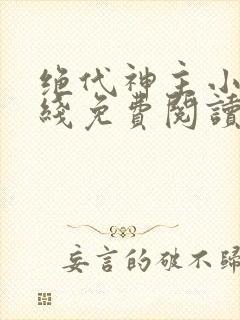 绝代神主小
綫免費閱讀
妄言的破不歸